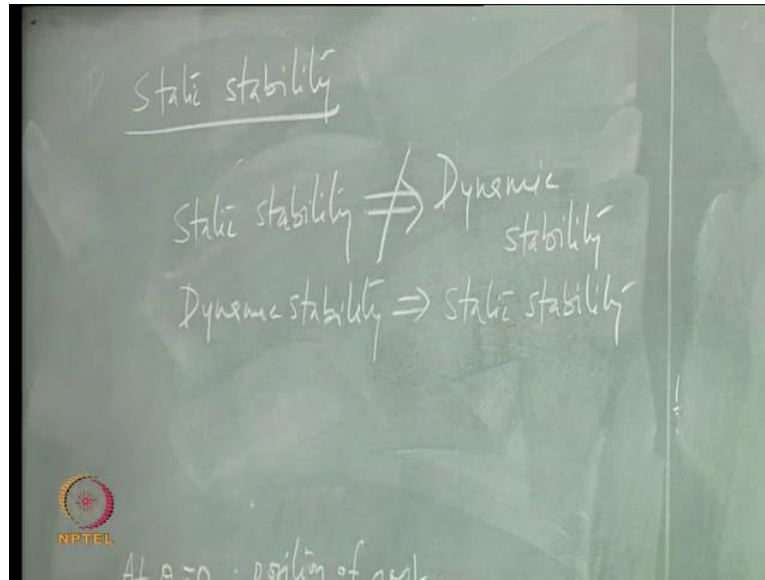 Static stability
Static stability ⇏ Dynamic
stability
Dynamic stability ⇒ Static stability
NPTEL
At θ=0 : position of